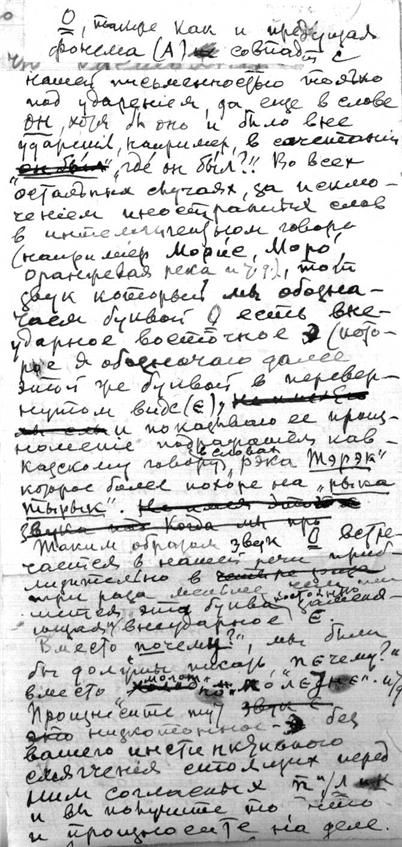 О, также как и предыдущая
фонема (А) совпадает с
нашей письменностью только
под ударением, да еще в слове
он, хотя бы оно и было вне
ударения, например, в сочетании
"где он был?!" Во всех
остальных случаях, за исклю-
чением иностранных слов
в интеллигентном говоре
(например Морис, Моро,
Оранжевая река и т.д.), тот
звук который мы обозна-
чаем буквой О есть вне-
ударное восточное Э (кото-
рое я обозначаю далее
этой же буквой в перевер-
нутом виде (Є),
и показываю ее произ-
ношение подражанием кав-
казскому говору в словах "рэка Тэрэк"
которое более похоже на "рыка
Тырык".
звука
Когда мы
Таким образом звук О встре-
чается в нашей речи приб-
лизительно в
три раза менее чем
эта буква постоянно
внеударное Є.
Вместо "почему?", мы были
бы должны писать "пЄчему?"
вместо
Произнесите тут звук Є
это низкотонное Э без
вашего инстинктивного
смягчения стоящих перед
ним согласных "п" "л" и "к"
и вы получите то что
и произносите на деле.